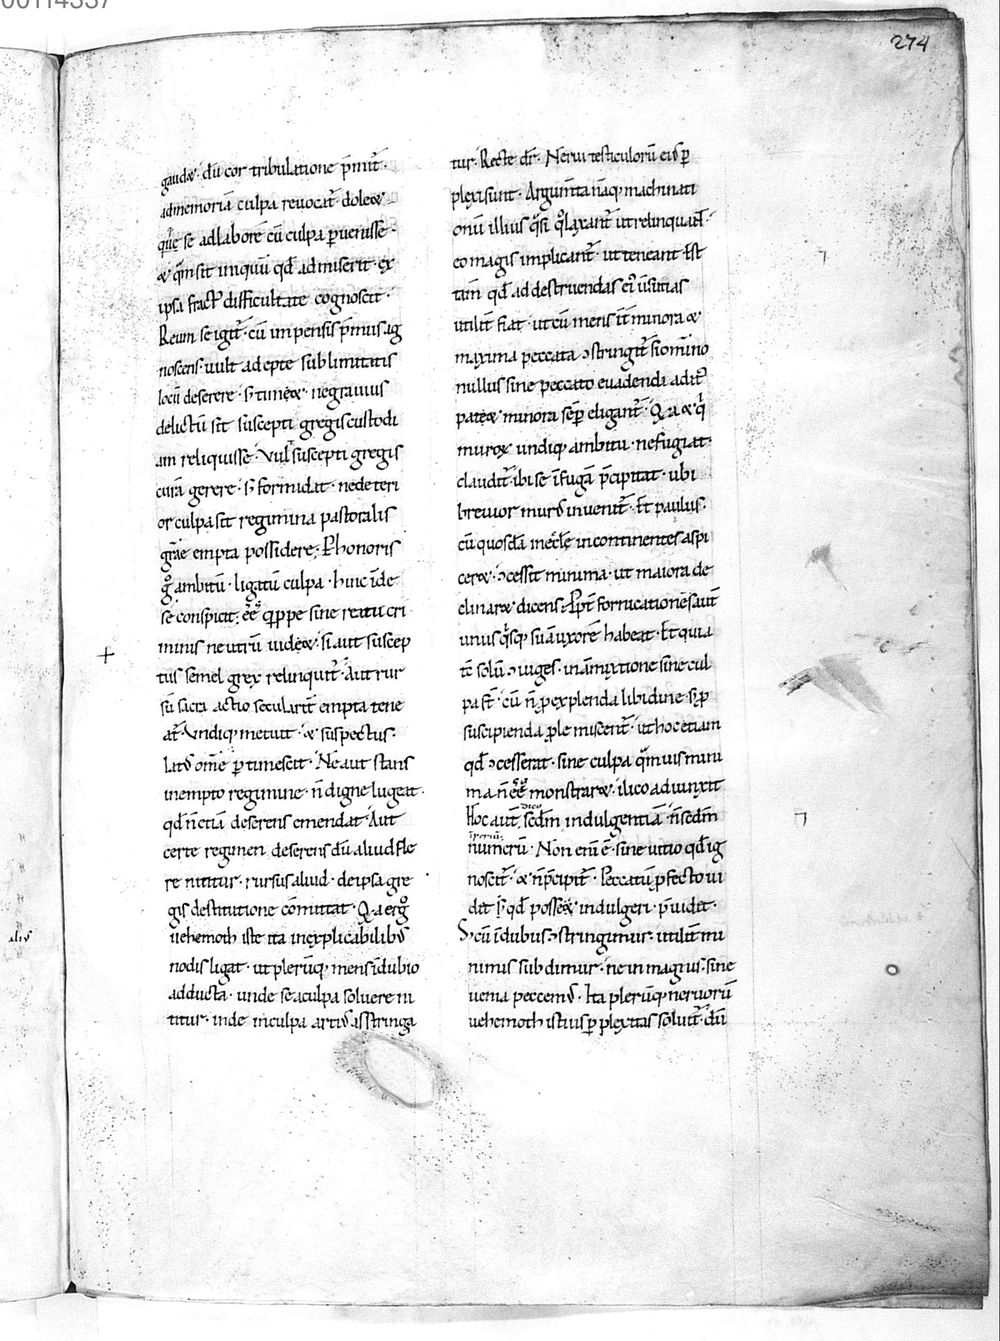 00114337
274
gaudet· dũ cor tribulatione p̄mit̃·
admemoriã culpa reuocat̃· dolet·
qi̾ę se adlaborẽ cũ culpa puenisse·
& qm̃sit iniquũ qd̃ admiserit· ex
ipsa fact᾽ difficultate cognoscit·
Reum se igit̃· cũ impensis p̄mius ig
noscens· uult adepte sublimitatis
locũ deserere· s; timet· negrauius
delictũ sit suscepti gregis custodi
am reliquisse· Vult̾ suscepti gregis
curã gerere· s; formidat· nedeteri
or culpa sit regimina pastoralis
grãe empta possidere; P honoris
gͦ ambitũ· ligatũ culpa· hinc ĩde
se conspicit; ẽẽ qppe sine reatu cri
minis neutrũ uidet· si aut suscep
tus semel grex relinquit̃· Aut rur
sũ sacra actio seculariť empta tene
at̃· Vndiq; metuit· & suspectus·
lat᾽ om̃e ptimescit· Ne aut stans
inempto regimine· ñ digne lugeat·
qd̃ ñ etiã deserens emendat· Aut
certe regimen deserens dũ aliud fle
re nititur· rursus aliud· deipsa gre
gis destitutione cõmittat· Q, a ergͦ
uehemoth iste ita inexplicabilib᾽
nodis ligat· ut plerũq; mens ĩdubio
adducta· unde se aculpa soluere ni
titur· inde inculpa arti᾽ astringa
tur· Recte dr̃· Nerui testiculorũ ei᾽ p
plexi sunt· Argum̃ta nãq; machinati
onũ illius q̾si q̾ laxant̃ ut relinquat̃·
eo magis implicant̃· ut teneant· Est
tam̃ qd̃ ad destruendas ei᾽ uersutias
utilit̃ fiat· ut cũ mens int̃ minora &
maxima peccata ɔstringit̃ si om̃ino
nullus sine peccato euadendi adit᾽
patet· minora sẽp eligant̃· Q, a & q̾
murox̃ undiq; ambitu· ne fugiat·
claudit̃· ibi se ĩ fugã p̄cipitat· ubi
breuior mur᾽ inuenit̃· Et paulus·
cũ quosdã ĩ ecclẽ incontinentes aspi
ceret· ɔcessit minima· ut maiora de
clinaret dicens; Ppt̃ fornicationẽ aut̃
unus q̾sq; suã uxorẽ habeat· Et quia
tc̃ solũ ɔiuges· in am̃ixtione sine cul
pa st̃· cũ ñ p explenda libidine· s; p
suscipienda ple miscent̃· ut hoc etiam
qd̃ ɔcesserat· sine culpa qm̃uis mini
ma ñ ẽẽ monstraret· ilico adiunxit
Hoc aut̃ dico scdm̃ indulgentiã· ñ scdm̃
imperiũ· Non eni ẽ· sine uitio qd̃ ig
noscit̃· & ñ p̄cipit̃· Peccatũ pfecto ui
dit· qd̃ posset indulgeri· p̄uidit·
S; cũ ĩ dubus ɔstringimur· utilit̃ mi
nimis subdimur· ne in magnis· sine
uenia peccem᾽· Ita plerũq; neruorũ
uehemoth istius pplexitas soluit̃· dũ